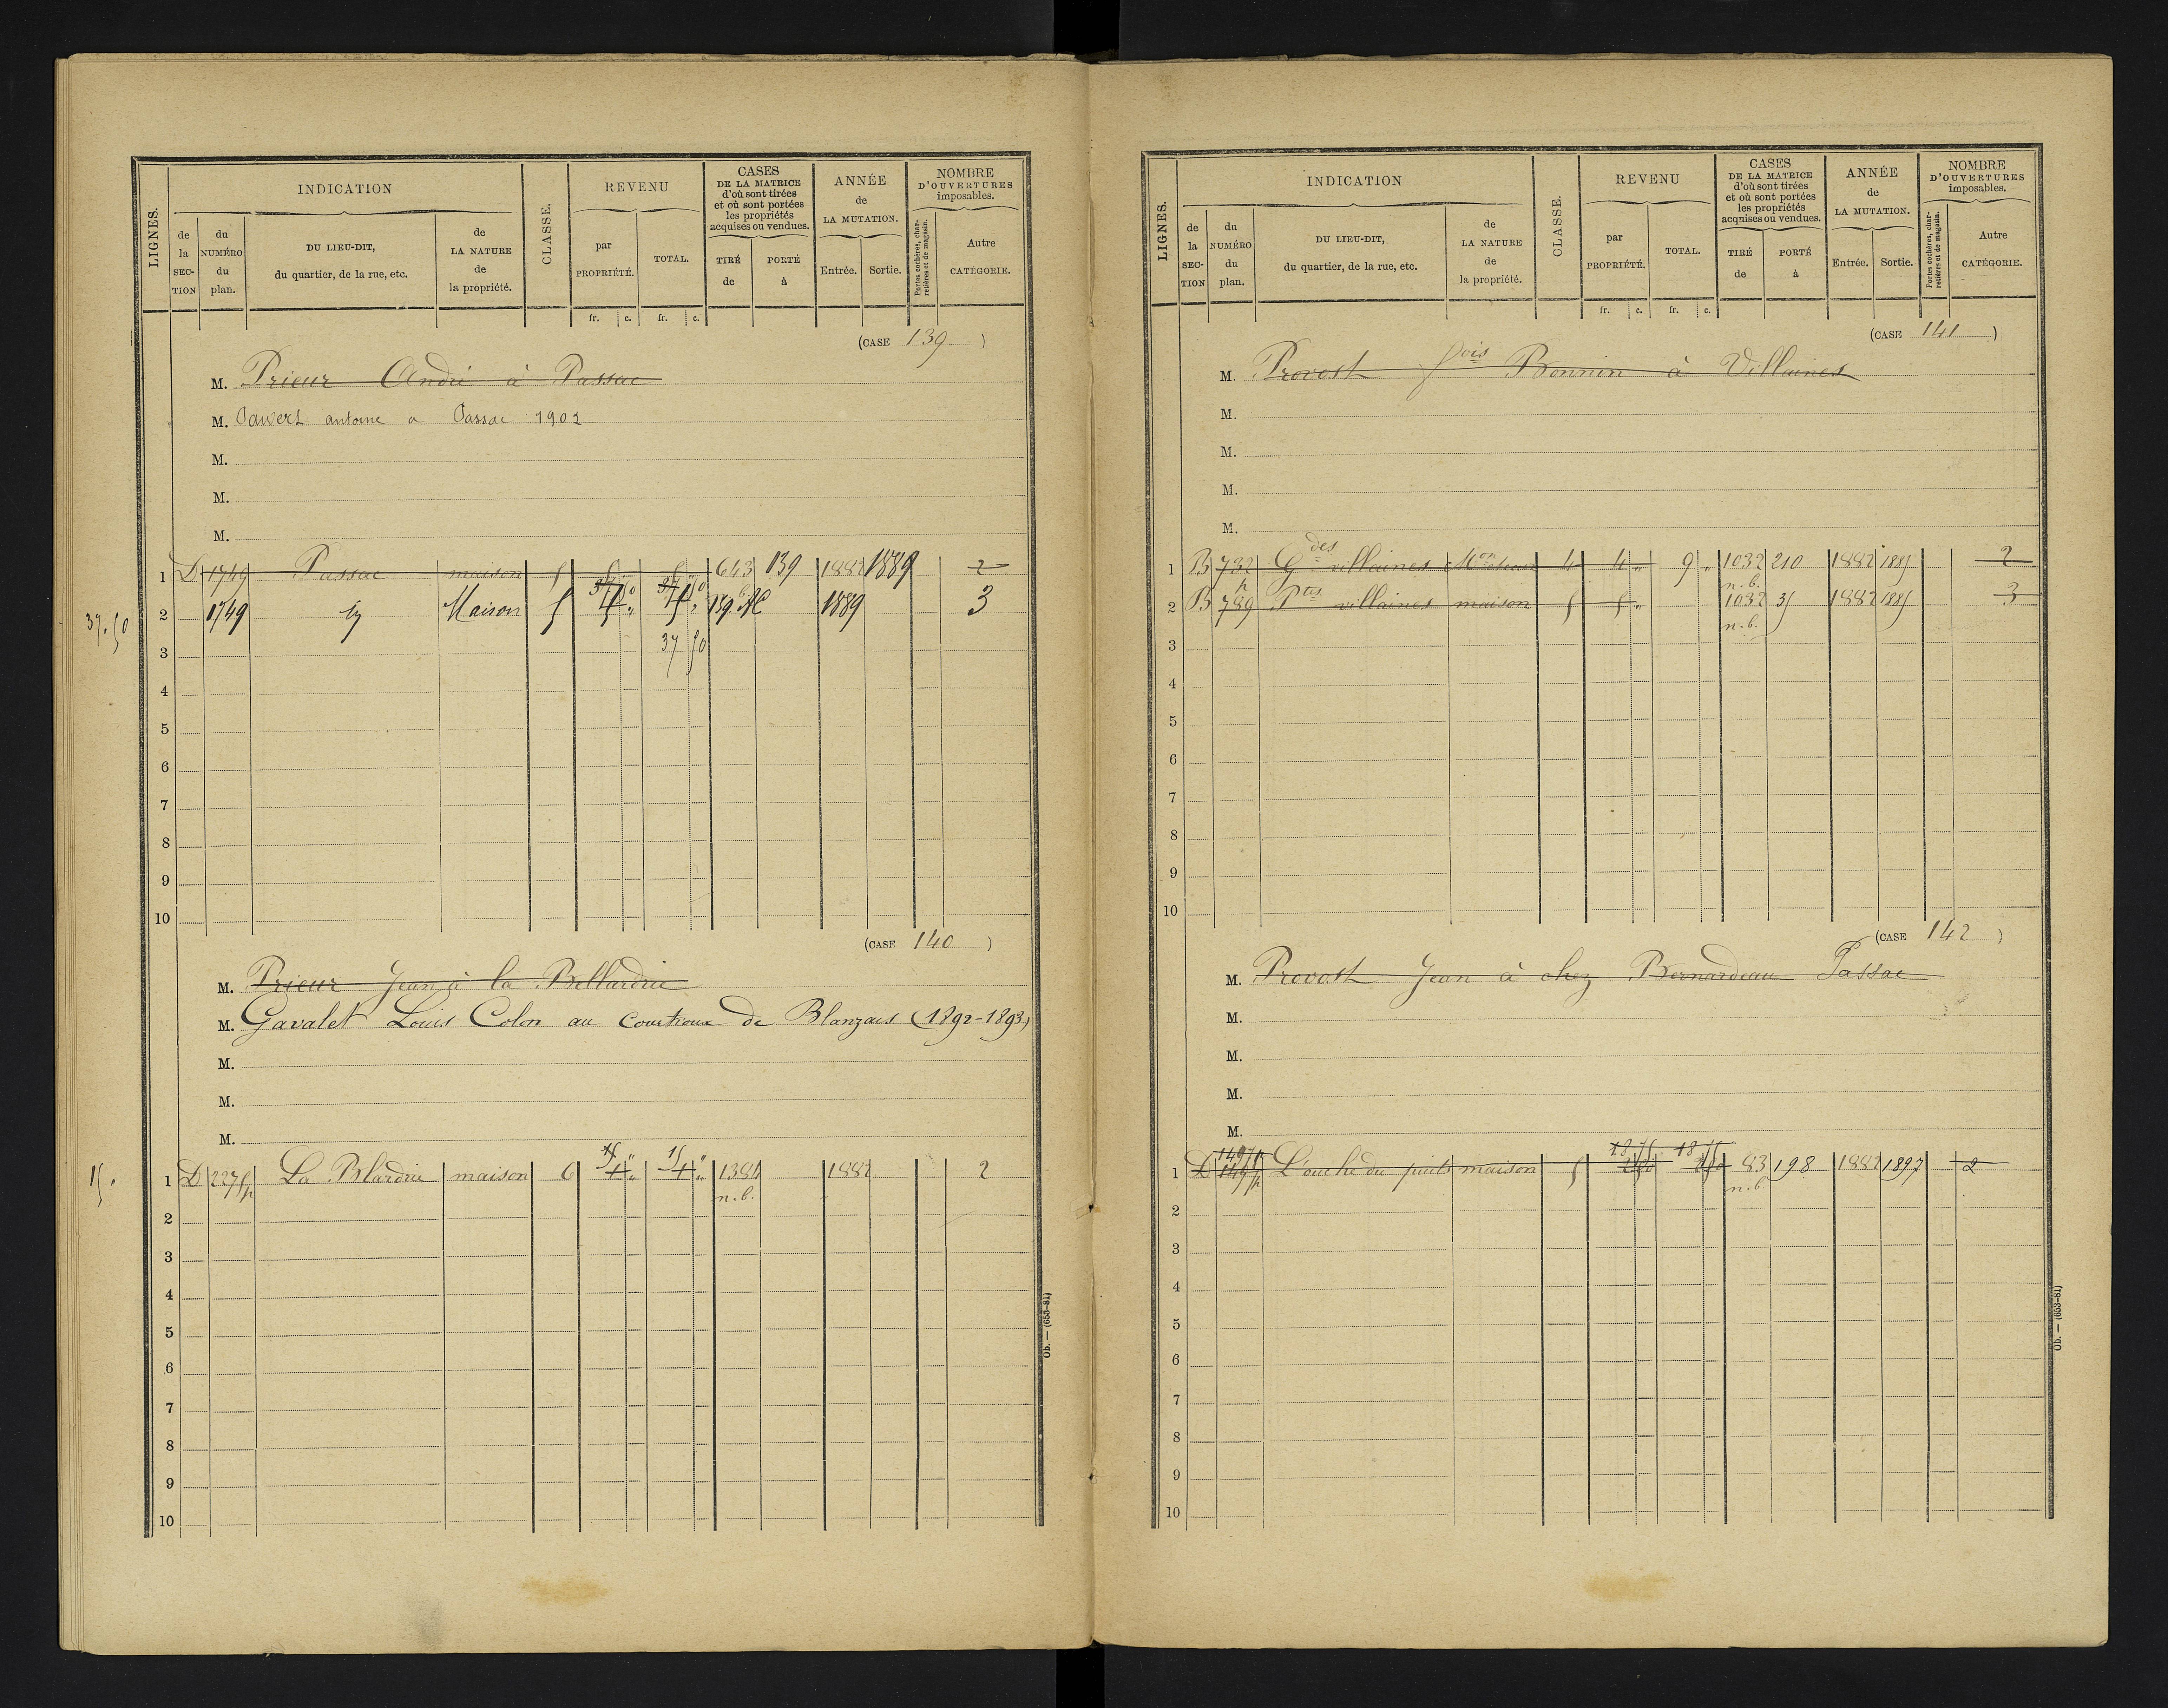 LIGNES.
INDICATION
de la SECTION
du NUMÉRO du plan.
DU LIEU-DIT, du quartier, de la rue, etc.
de LA NATURE de la propriété.
CLASSE.
REVENU
par PROPRIÉTÉ.
TOTAL.
CASES DE LA MATRICE d'où sont tirées et où sont portées les propriétés acquises ou vendues.
TIRÉ de
PORTÉ à
ANNÉE de LA MUTATION.
Entrée. Sortie.
NOMBRE D'OUVERTURES imposables.
Portes cochères, charretières et de magasin.
Autre CATÉGORIE.
fr. c. fr. c.
(CASE 139 )
M. Prieur André à Passac
M. antoine a Passac 1902
M.
M.
M.
1 D 1749 Passac maison 5 643 139 1882 1889 2
37.50
2 1749 Maison 5 1889 3
37 50
3
4
5
6
7
8
9
10
(CASE 140 )
M. Prieur Jean à la Bellardrie
M. Gavalet Louis Colon au Courtioux de Blanzais (1892-1893)
M.
M.
M.
15.
1 D 2275p La Blardrie maison 6 4 „ 4 „ 1384 1882 2
n.b.
2
3
4
5
6
7
8
9
10
Ob. — (653-81)
LIGNES.
INDICATION
de la SECTION
du NUMÉRO du plan.
DU LIEU-DIT, du quartier, de la rue, etc.
de LA NATURE de la propriété.
CLASSE.
REVENU
par PROPRIÉTÉ.
TOTAL.
CASES DE LA MATRICE d'où sont tirées et où sont portées les propriétés acquises ou vendues.
TIRÉ de
PORTÉ à
ANNÉE de LA MUTATION.
Entrée. Sortie.
NOMBRE D'OUVERTURES imposables.
Portes cochères, charretières et de magasin.
Autre CATÉGORIE.
fr. c. fr. c.
(CASE 141 )
M. Provost fois Bonnin à Villaines
M.
M.
M.
M.
1 B 732 Gdes villaines Mon 4 4 „ 9 „ 1032 210 1882 1885 2
n.b.
2 B 789 Ptes villaines maison 5 5 „ 1032 35 1882 1885 3
n.b.
3
4
5
6
7
8
9
10
(CASE 142 )
M. Provost Jean à chez Bernardeau Passac
M.
M.
M.
M.
18 75 18 75
1 D L'ouche du puits maison 5 83 198 1882 1897 2
n.b.
2
3
4
5
6
7
8
9
10
Ob. — (653-81)